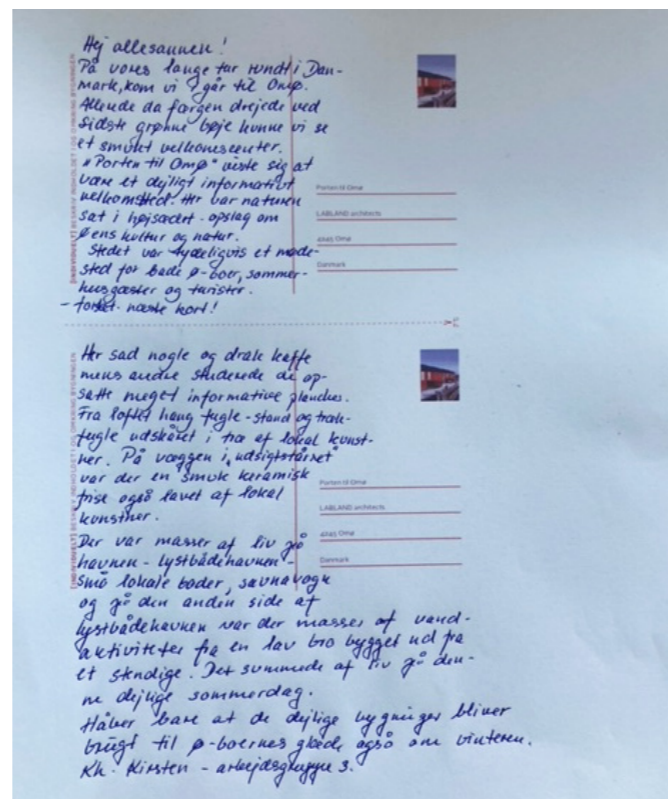 Hej allesammen!
På vores lange tur rundt i Dan-
mark, kom vi i går til Omø.
Allerede da færgen drejede ved
sidste grønne bøje kunne vi se
et smukt velkomstcenter.
"Porten til Omø" viste sig at
være et dejligt informativt
velkomsted. Her var naturen
sat i højsædet - opslag om
øens kultur og natur.
Stedet var tydeligvis et møde-
sted for både ø-boer, sommer-
husgæster og turister.
- forts. næste kort!
[INDIVIDUELT] BESKRIV INDHOLDET I OG OMKRING BYGNINGEN
Porten til Omø
LABLAND architects
4245 Omø
Danmark
Her sad nogle og drak kaffe
mens andre studerede de op-
satte meget informative plancher.
Fra loftet hang fugle - stand og træk-
fugle udskåret i træ af lokal kunst-
ner. På væggen i "udsigtstårnet"
var der en smuk keramisk
frise også lavet af lokal
kunstner.
Der var masser af liv på
havnen - lystbådehavnen -
små lokale boder, saunavogn
og på den anden side af
lystbådehavnen var der masser af vand-
aktiviteter fra en lav bro bygget ud fra
et stendige. Det summede af liv på den-
ne dejlige sommerdag.
Håber bare at de dejlige bygninger bliver
brugt til ø-boernes glæde også om vinteren.
Kh. Kirsten - arbejdsgruppe 3.
[INDIVIDUELT] BESKRIV INDHOLDET I OG OMKRING BYGNINGEN
Porten til Omø
LABLAND architects
4245 Omø
Danmark